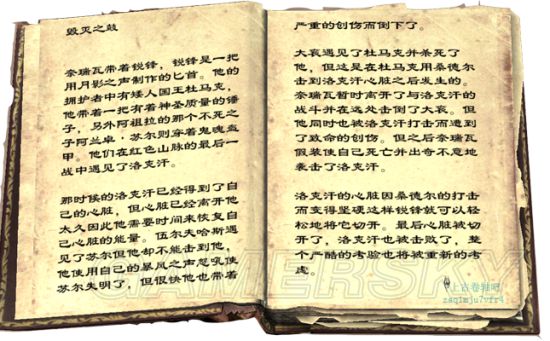 毁灭之鼓
奈瑞瓦带着锐锋，锐锋是一把
用月影之声制作的匕首。他的
拥护者中有矮人国王杜马克，
他带着一把有着神圣质量的锤
子，另外阿祖拉的那个不死之
子阿兰卓·苏尔则穿着鬼魂盔
甲。他们在红色山脉的最后一
战中遇见了洛克汗。
那时候的洛克汗已经得到了自
己的心脏，但心脏已经离开他
太久因此他需要时间来恢复自
己心脏的能量。伍尔夫哈斯遇
见了苏尔但他却不能击到他，
他使用自己的暴风之声怒吼使
苏尔失明了，但很快他也带着
严重的创伤而倒下了。
大衮遇见了杜马克并杀死了
他，但这是在杜马克用桑德尔
击到洛克汗心脏之后发生的。
奈瑞瓦暂时离开了与洛克汗的
战斗并在远处击倒了大衮。但
他同时也被洛克汗打击而遭到
了致命的创伤。但之后奈瑞瓦
假装使自己死亡并出奇不意地
袭击了洛克汗。
洛克汗的心脏因桑德尔的打击
而变得坚硬这样锐锋就可以轻
松地将它切开。最后心脏被切
开了，洛克汗也被击败了，整
个严酷的考验也将被重新的考
虑。
GAMERSKY
上古卷轴吧
zsqimju7vfr4